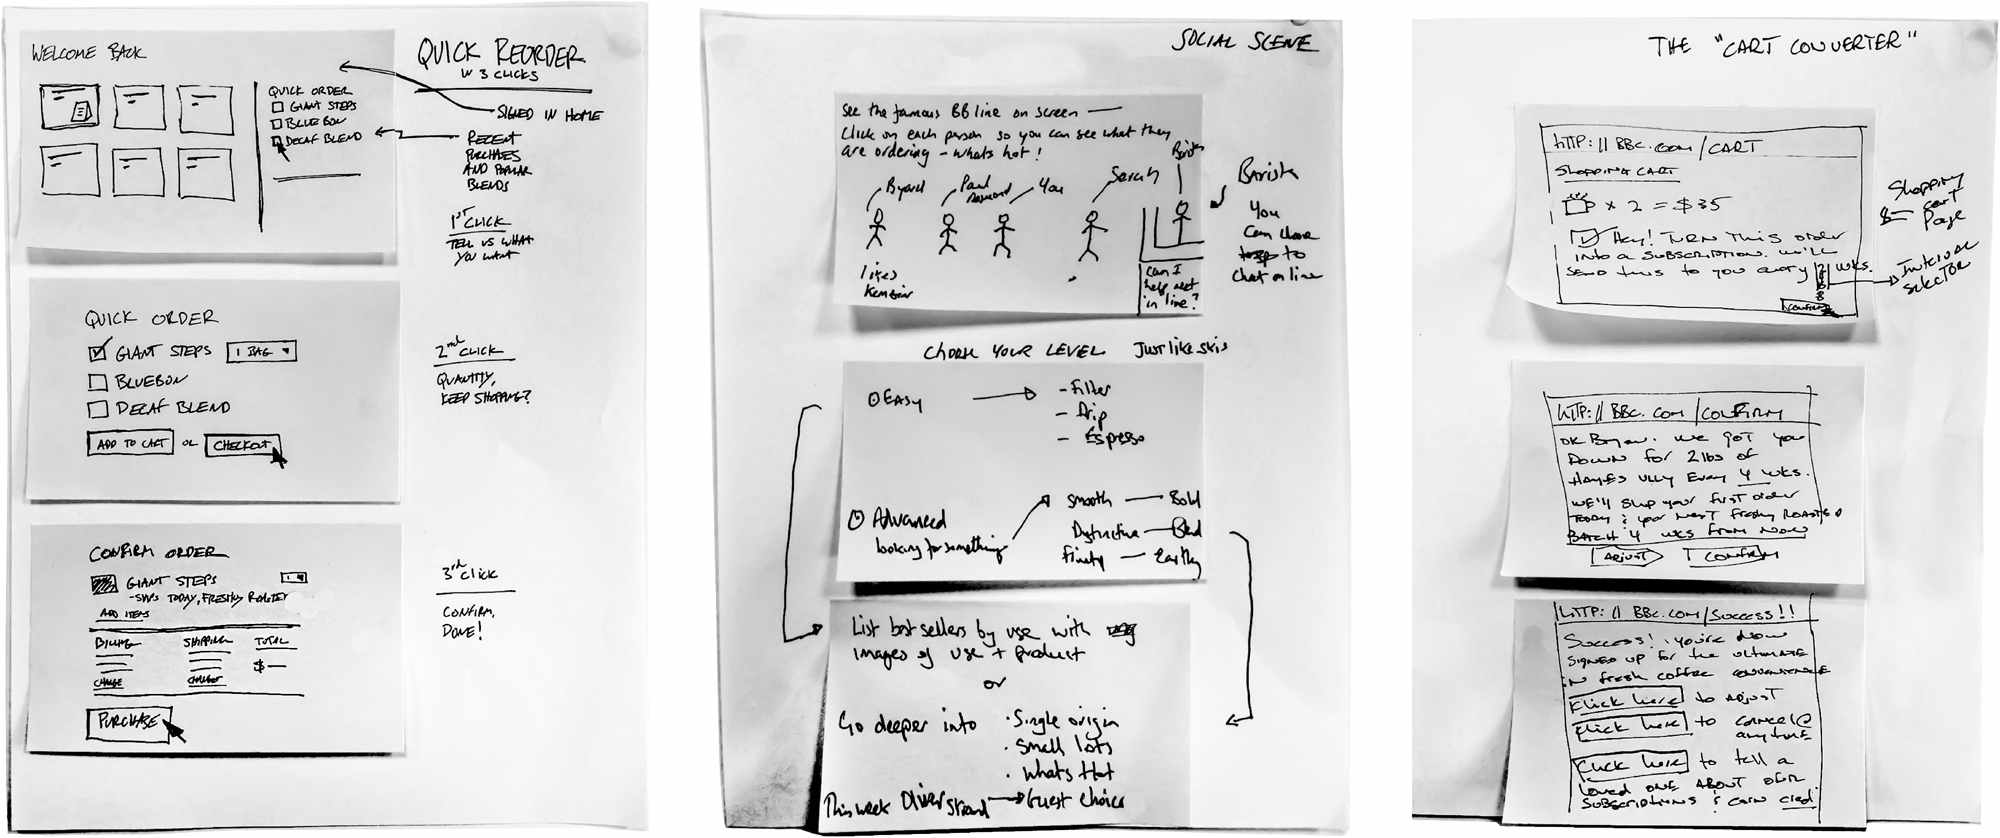 WELCOME BACK
QUICK ORDER
GIANT STEPS
BLUEBON
DECAF BLEND
QUICK REORDER
W 3 CLICKS
SIGNED IN HOME
RECENT
PURCHASES
AND POPULAR
BLENDS
1ST CLICK
TELL US WHAT
YOU WANT
QUICK ORDER
GIANT STEPS 1 BAG
BLUEBON
DECAF BLEND
ADD TO CART OR CHECKOUT
2nd CLICK
QUANTITY,
KEEP SHOPPING?
CONFIRM ORDER
GIANT STEPS 1
- SHIPS TODAY, FRESHLY ROASTED
ADD ITEMS
BILLING SHIPPING TOTAL
$ —
CHANGE CHANGE
PURCHASE
3rd CLICK
CONFIRM,
DONE!
SOCIAL SCENE
See the famous BB line on screen —
Click on each person so you can see what they
are ordering - whats hot!
Byard Paul You Sarah Barista
likes
Can I
help next
in line?
Barista
You
Can chose
to
chat on line
CHOSE YOUR LEVEL Just like skis
Easy
- Filter
- Drip
- Espresso
Advanced
looking for something
Smooth — Bold
Distinctive — Blend
Fruity — Earthy
List best sellers by use with
images of use + product
or
Go deeper into
· Single origin
· Small lots
· Whats Hot
This week Oliver Strand → Guest Choice
THE "CART CONVERTER"
HTTP://BBC.COM/CART
SHOPPING CART
x 2 = $35
Hey! TURN THIS order
INTO A SUBSCRIPTION. We'll
SEND this to you every 2 WKS.
CONFIRM
Shopping
cart
Page
Interval
selector
HTTP://BBC.COM/CONFIRM
OK Bryan. We got you
Down for 2 lbs of
HAYES VLLY Every 4 wks.
We'll ship your first order
TODAY & your next freshly ROASTED
BATCH 4 wks from NOW
ADJUST CONFIRM
HTTP://BBC.COM/SUCCESS!!
Success! you're NOW
SIGNED UP for the ULTIMATE
IN fresh coffee convenience
Klick here to ADJUST
Klick here to CANCEL @
anytime
Click here to tell a
loved ONE ABOUT OUR
SUBSCRIPTIONS & earn cred.